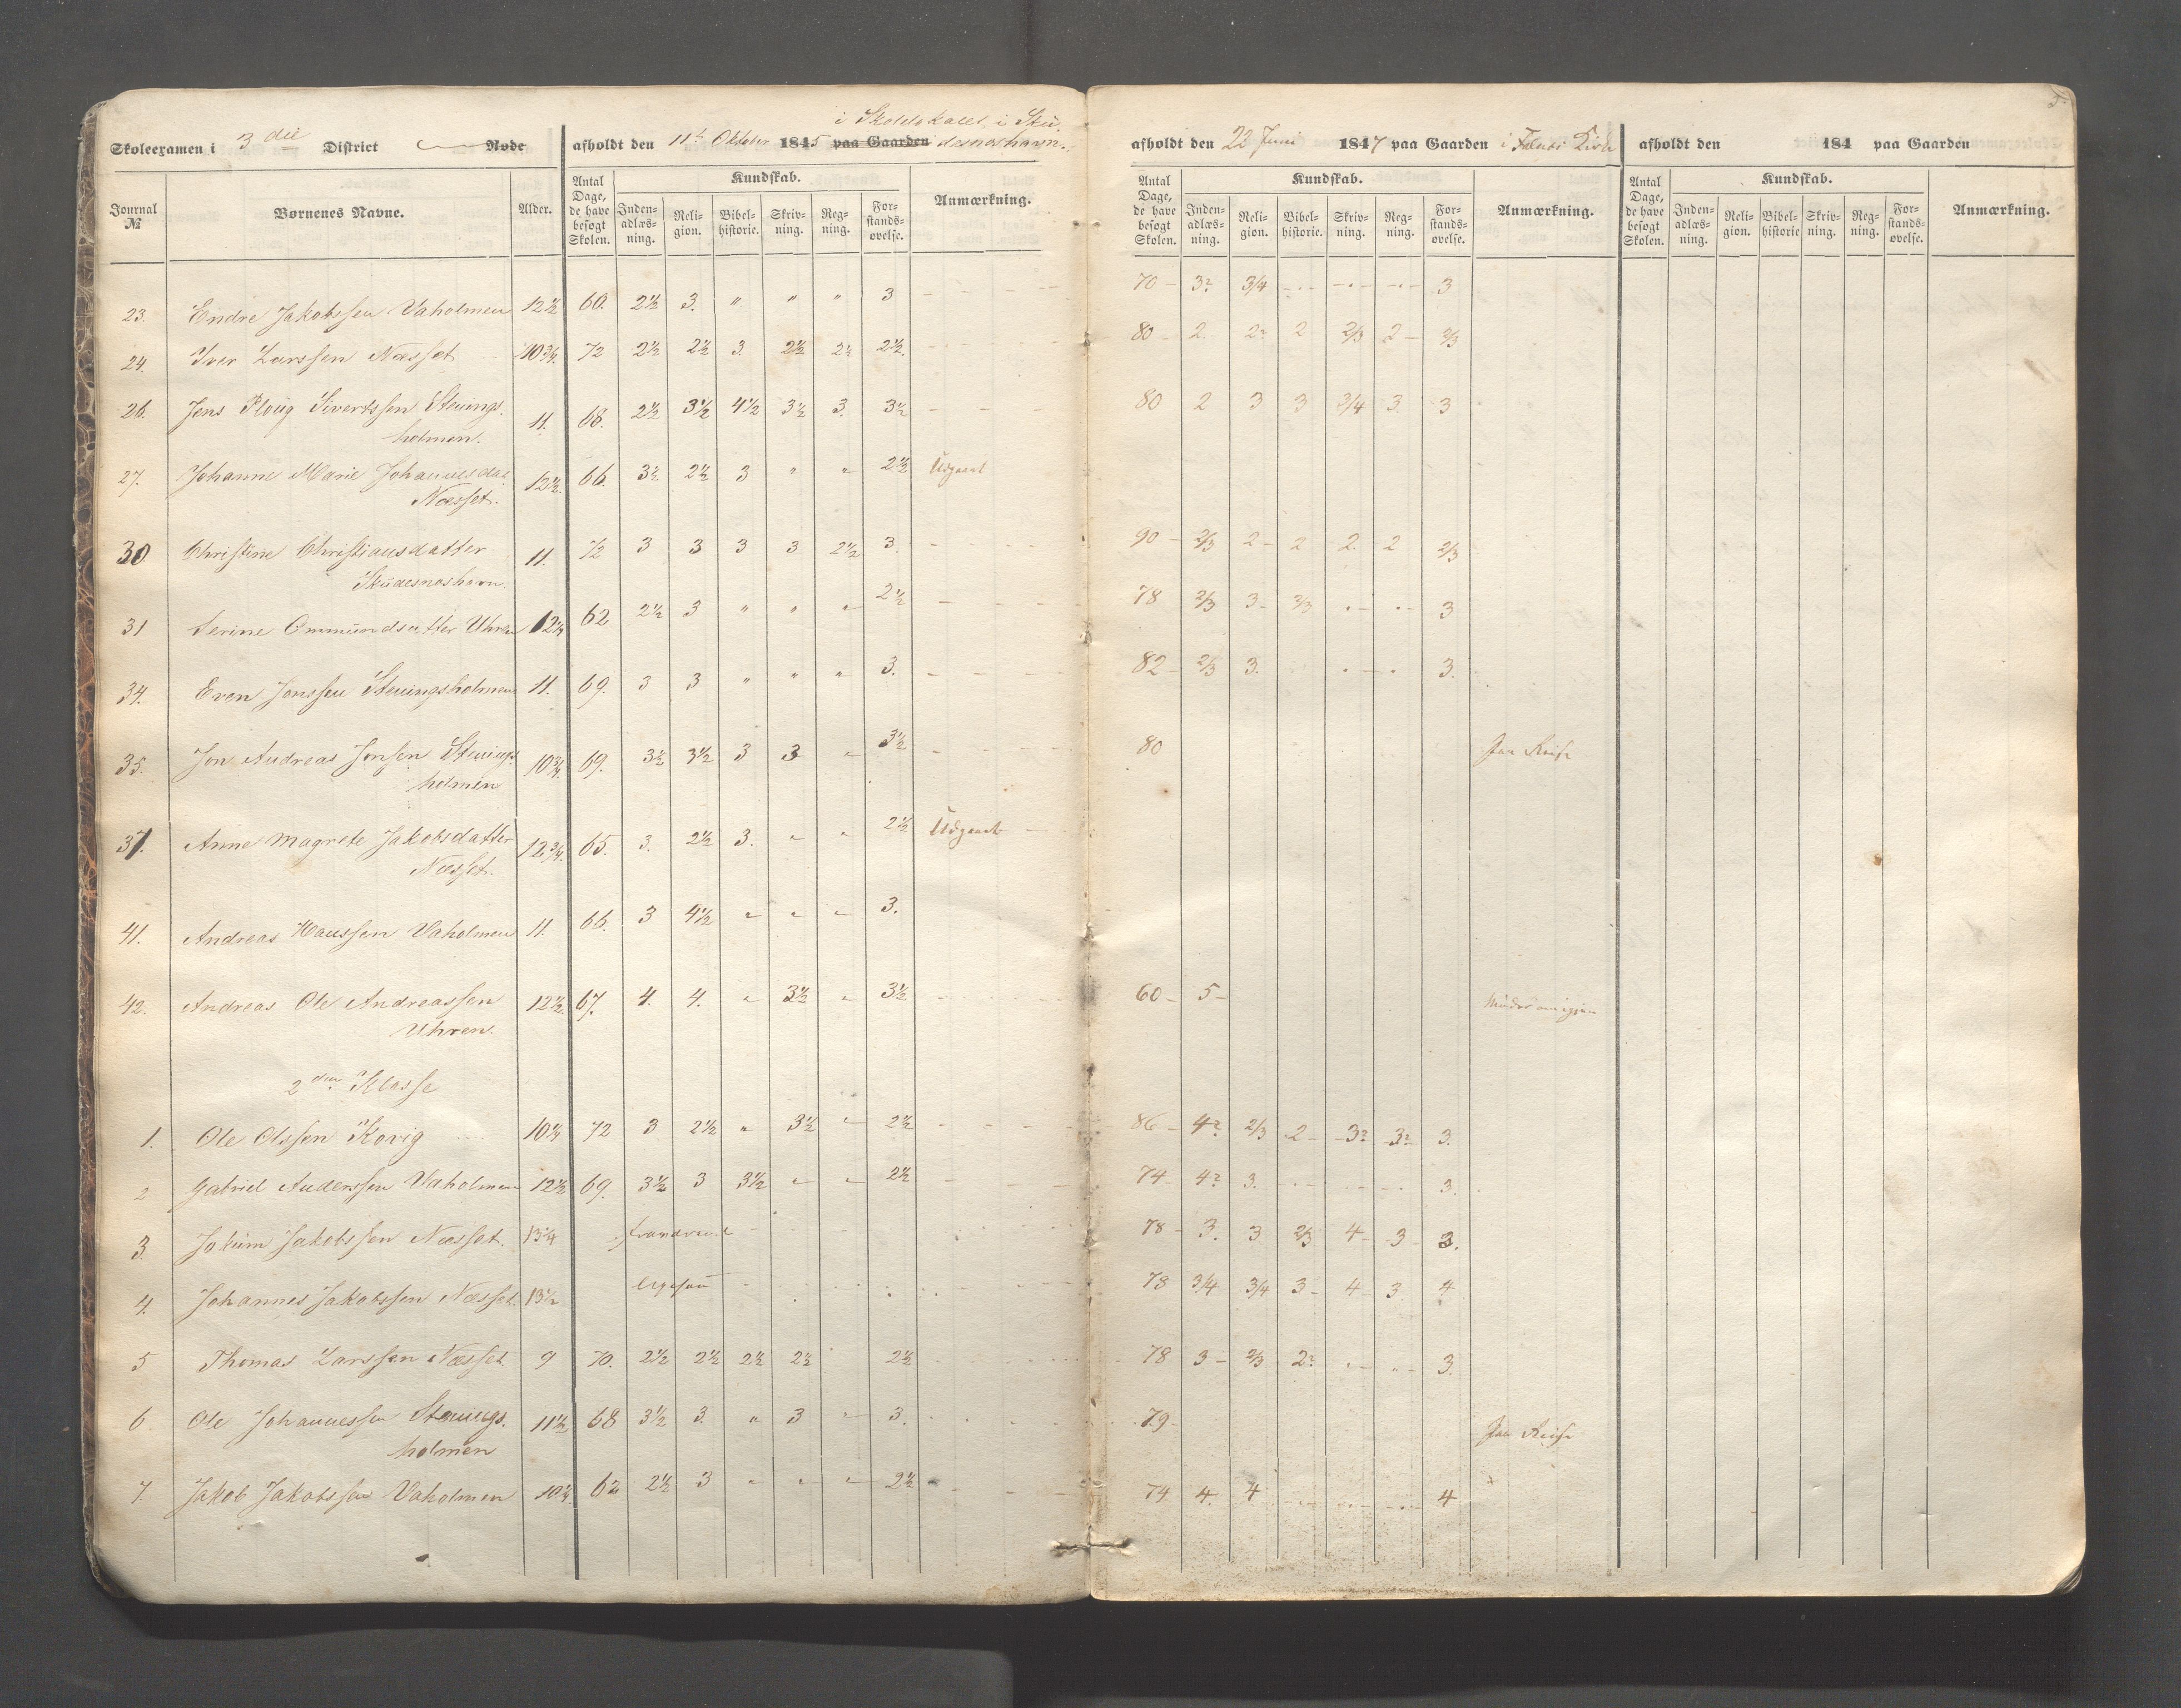 i Skolelokalet i Sku-
Skoleexamen i 3die District Rode afholdt den 11te Oktober 1845 paa Gaarden desneshavn.
Journal № Børnenes Navne. Alder. Antal Dage, de have besøgt Skolen. Kundskab. Inden-adlæs-ning. Reli-gion. Bibel-historie. Skriv-ning. Reg-ning. For-stands-øvelse. Anmærkning.
23. Endre Jakobssen Vaholmen 12½ 60. 2½ 3. " " " 3
24. Iver Larssen Næsset 10¾. 72 2½ 2½ 3. 2½ 2½ 2½.
26. Jens Ploug Sivertssen Stenings-
holmen. 11. 68. 2½ 3½ 4½ 3½ 3. 3½
27. Johanne Marie Johannesdat.
Næsset. 12½. 66. 3½ 2½ 3 " " 2½ Udgaaet
30 Christine Christiansdatter
Skudesneshavn. 11. 72 3 3 3 3 2½ 3.
31 Serine Ommundsdatter Uhren 12¼ 62 2½ 3 " " " 2½
34. Even Jonssen Steningsholmen 11. 69. 3 3 " " " 3.
35. Jon Andreas Jonsen Stenings-
holmen 10¾. 69. 3½ 3½ 3 3 " 3½
37. Anne Magrete Jakobsdatter
Næsset. 12¾. 65. 3. 2½ 3. " " 2½ Udgaaet
41. Andreas Hanssen Vaholmen 11. 66. 3 4½ " " " 3.
42. Andreas Ole Andreassen
Uhren. 12½. 67. 4. 4. " 3½ " 3½
2den Klasse
1. Ole Olssen Kovig 10¼ 72 3 2½ " 3½ " 2½
2 Gabriel Anderssen Vaholmen 12½ 69. 3½ 3 3½ " " 2½
3. Jokum Jakobssen Næsset. 13¼
4. Johannes Jakobssen Næsset. 13½ ligesaa
5 Thomas Larssen Næsset 9 70. 2½ 2½ 2½ 2½ 2½
6 Ole Johannessen Stenings-
holmen 11½ 68 3½ 3. " 3 " 3.
7. Jakob Jakobssen Vaholmen 10¼. 62 2½ 3 " " " 2½
5.
afholdt den 22 Juni 1847 paa Gaarden i
Antal Dage, de have besøgt Skolen. Kundskab. Inden-adlæs-ning. Reli-gion. Bibel-historie. Skriv-ning. Reg-ning. For-stands-øvelse. Anmærkning.
70 3? 3/4 3
80 2. 2? 2 2/3 2 2/3
80 2 3 3 3/4 3. 3
90 2/3 2 2 2. 2 2/3
78 2/3 3 2/3 3
82 2/3 3. 3.
80 Paa Reise
60 5
86 4? 2/3 2 3? 3? 3.
74 4? 3. 3.
78 3. 3 2/3 4 3 3.
78 3/4 3/4 3 4 3. 4
78 3 2/3 2? 3.
79 Paa Reise
74 4. 4 4
afholdt den 184 paa Gaarden
Antal Dage, de have besøgt Skolen. Kundskab. Inden-adlæs-ning. Reli-gion. Bibel-historie Skriv-ning. Reg-ning. For-stands-øvelse. Anmærkning.